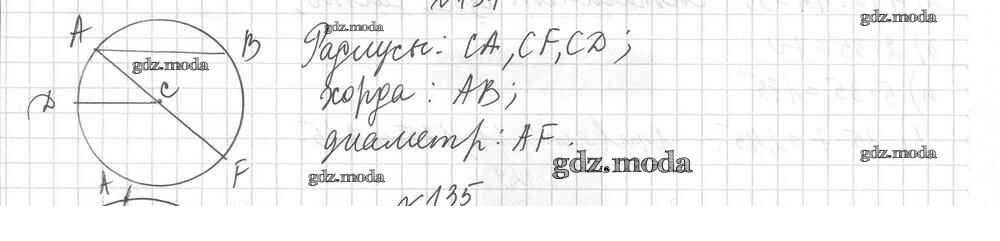 A B
Радиусы: CA, CF, CD;
C
D
хорда: AB;
диаметр: AF.
F
A
№135
gdz.moda
gdz.moda
gdz.moda
gdz.moda
gdz.moda
gdz.moda